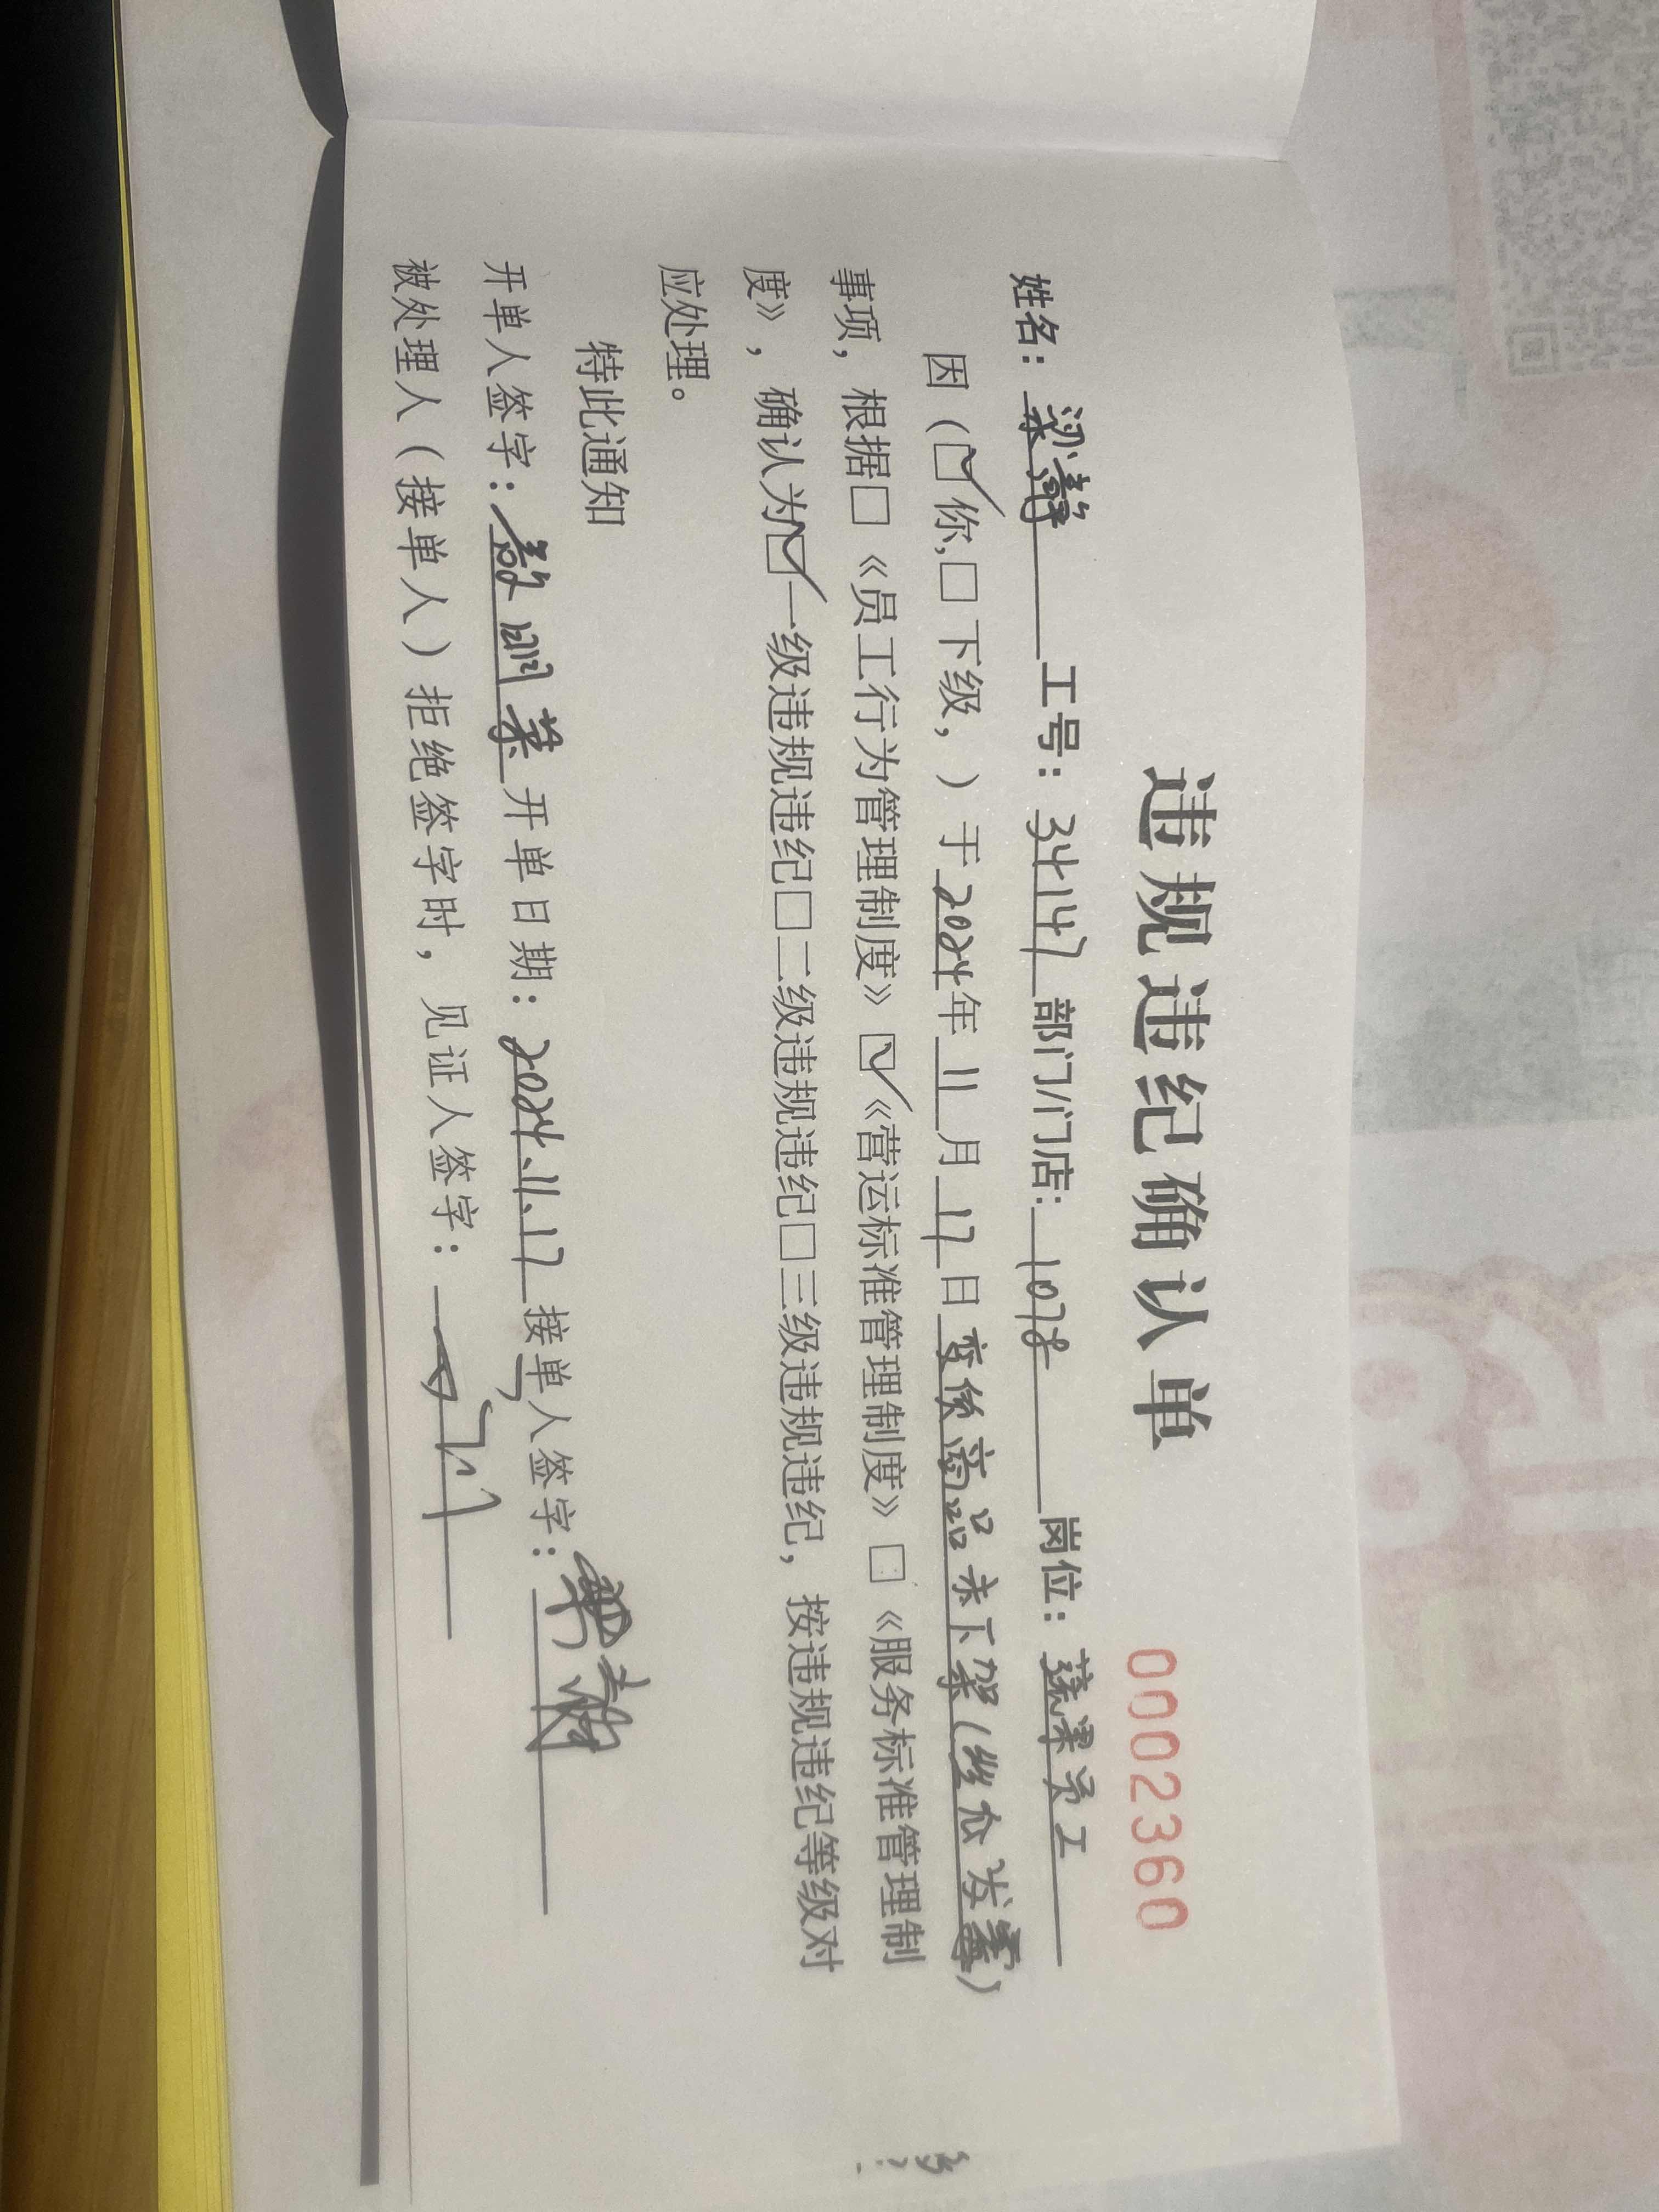 违规违纪确认单 0002360
姓名：梁静 工号：34147 部门/门店：1078 岗位：蔬果员工
因（☑你,□下级，）于2024年11月17日变质商品未下架（丝瓜发霉）
事项，根据□《员工行为管理制度》☑《营运标准管理制度》□《服务标准管理制
度》，确认为☑一级违规违纪□二级违规违纪□三级违规违纪，按违规违纪等级对
应处理。
特此通知
开单人签字： 开单日期：2024.11.17 接单人签字：梁静
被处理人（接单人）拒绝签字时，见证人签字：